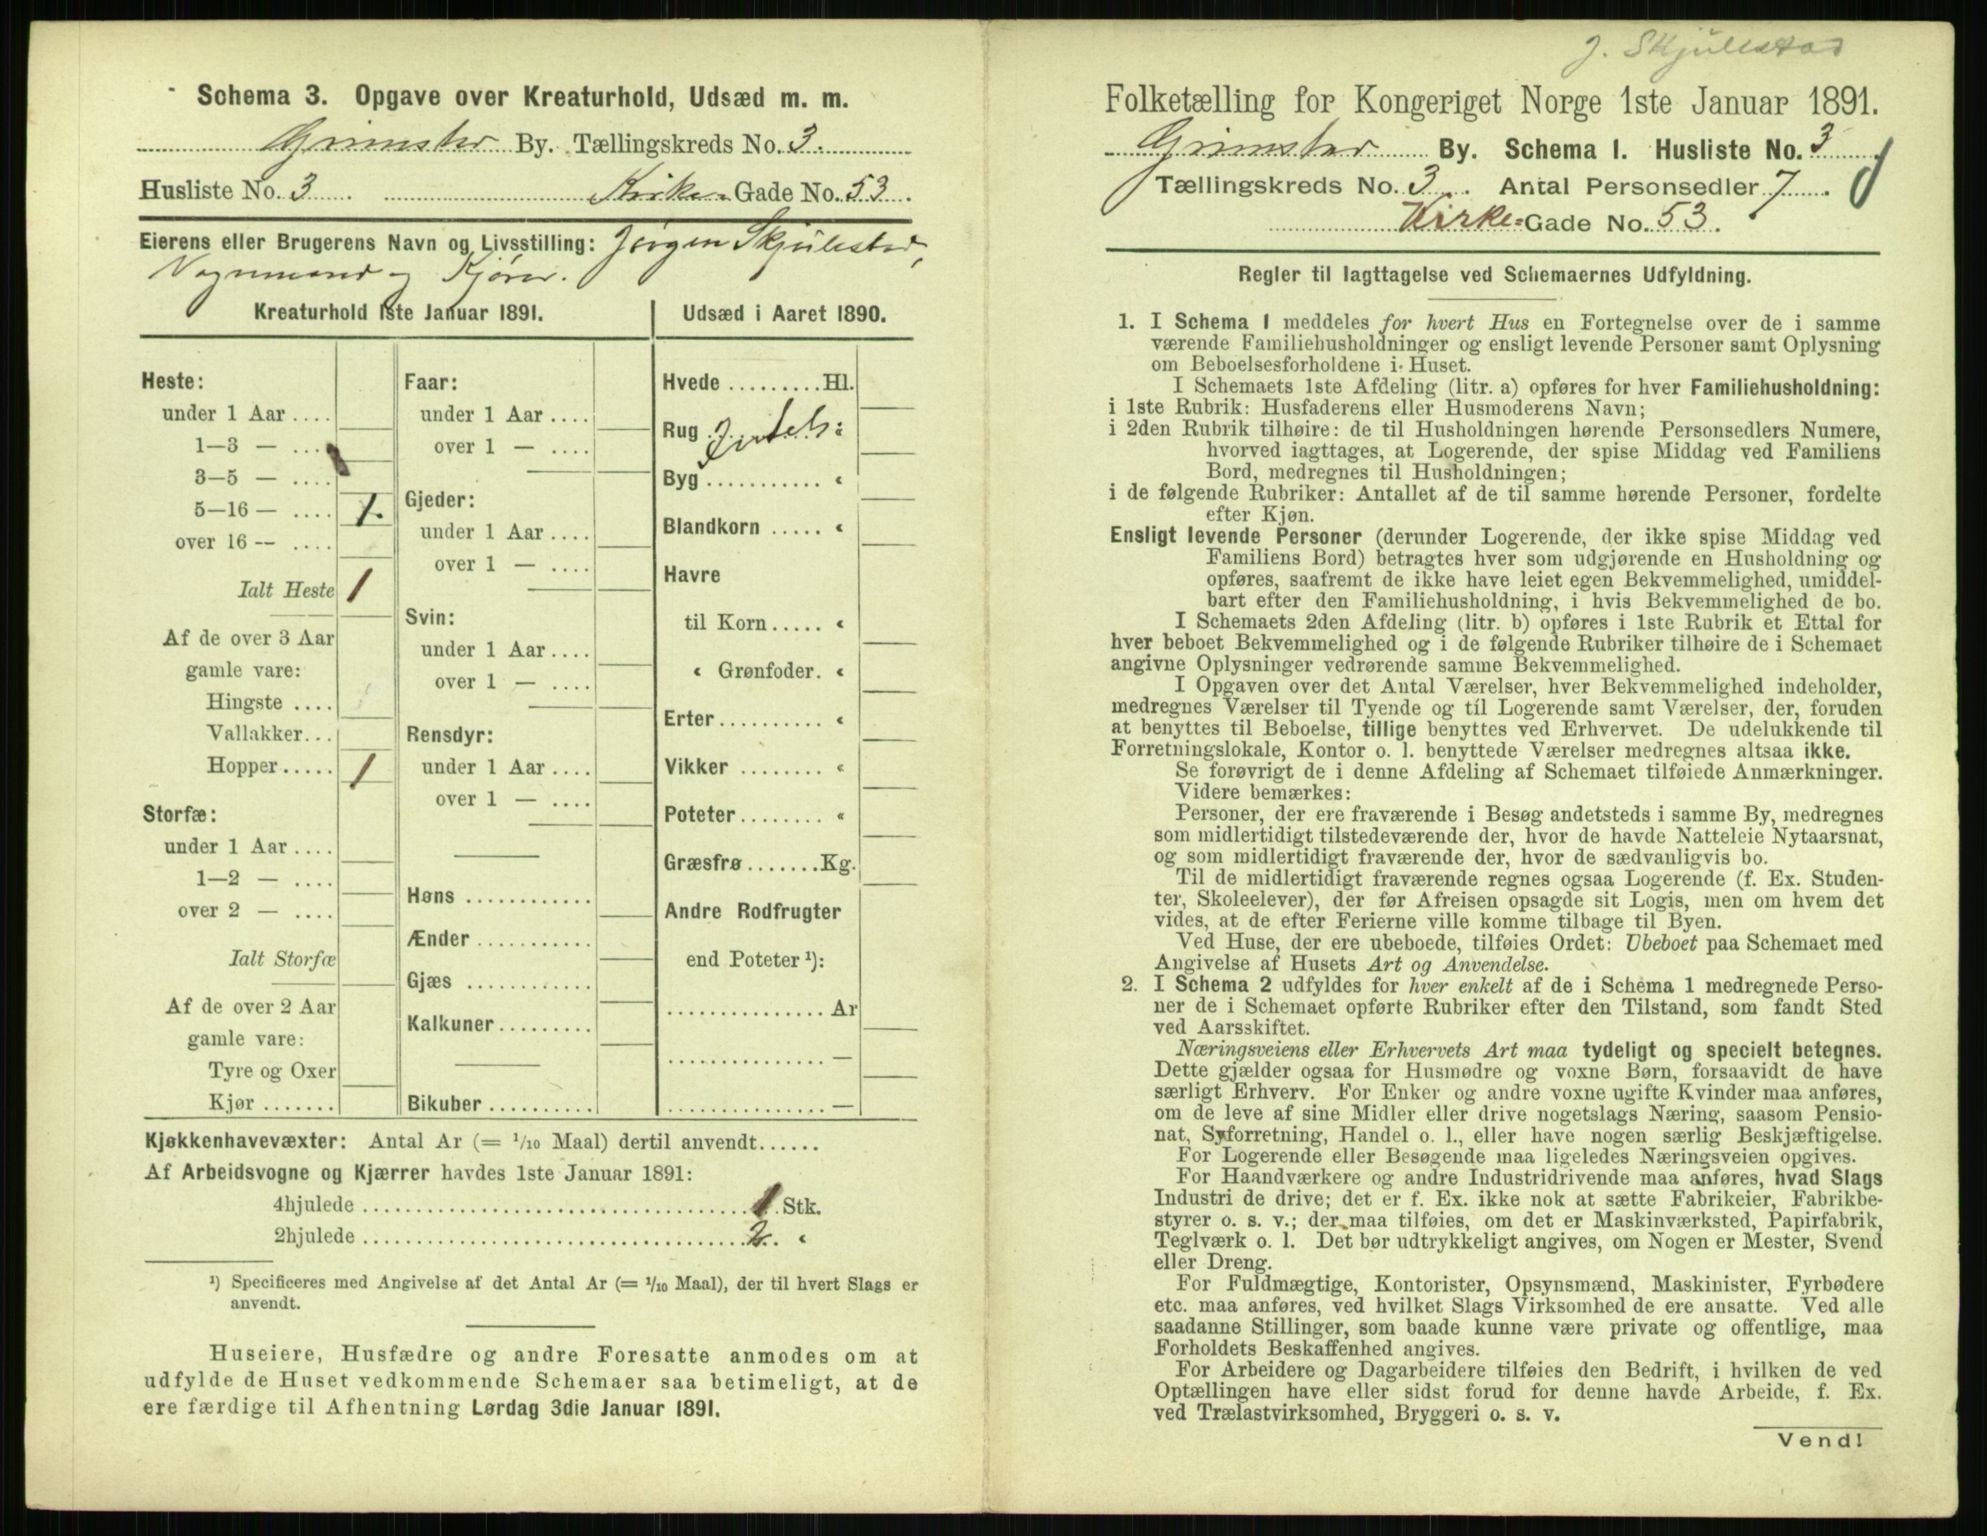 Schema 3. Opgave over Kreaturhold, Udsæd m. m.
Grimstad By. Tællingskreds No. 3.
Husliste No. 3 Kirke- Gade No. 53.
Eierens eller Brugerens Navn og Livsstilling: Jørgen Skjulestad,
Vognmand og Kjører.
Kreaturhold 1ste Januar 1891.
Heste:
under 1 Aar ....
1—3 — ....
3—5 — ....
5—16 — .... 1.
over 16 — ....
Ialt Heste 1
Af de over 3 Aar
gamle vare:
Hingste ....
Vallakker...
Hopper..... 1
Storfæ:
under 1 Aar ....
1—2 — ....
over 2 — ....
Ialt Storfæ
Af de over 2 Aar
gamle vare:
Tyre og Oxer
Kjør .......
Faar:
under 1 Aar ....
over 1 — ....
Gjeder:
under 1 Aar ....
over 1 — ....
Svin:
under 1 Aar ....
over 1 — ....
Rensdyr:
under 1 Aar ....
over 1 — ....
Høns ............
Ænder ...........
Gjæs ............
Kalkuner.........
Bikuber ..........
Udsæd i Aaret 1890.
Hvede .........Hl.
Rug «
Byg ........... «
Blandkorn ..... «
Havre
til Korn..... «
« Grønfoder. «
Erter.......... «
Vikker ........ «
Poteter........ «
Græsfrø .......Kg.
Andre Rodfrugter
end Poteter ¹):
............... Ar
............... —
............... —
Kjøkkenhavevæxter: Antal Ar (= 1/10 Maal) dertil anvendt......
Af Arbeidsvogne og Kjærrer havdes 1ste Januar 1891:
4hjulede ........ 1 Stk.
2hjulede ........ 2. «
¹) Specificeres med Angivelse af det Antal Ar (= 1/10 Maal), der til hvert Slags er
anvendt.
Huseiere, Husfædre og andre Foresatte anmodes om at
udfylde de Huset vedkommende Schemaer saa betimeligt, at de
ere færdige til Afhentning Lørdag 3die Januar 1891.
J. Skjulestad
Folketælling for Kongeriget Norge 1ste Januar 1891.
Grimstad By. Schema 1. Husliste No. 3
Tællingskreds No. 3. Antal Personsedler 7.
Kirke- Gade No. 53.
Regler til Iagttagelse ved Schemaernes Udfyldning.
1. I Schema 1 meddeles for hvert Hus en Fortegnelse over de i samme
værende Familiehusholdninger og ensligt levende Personer samt Oplysning
om Beboelsesforholdene i Huset.
I Schemaets 1ste Afdeling (litr. a) opføres for hver Familiehusholdning:
i 1ste Rubrik: Husfaderens eller Husmoderens Navn;
i 2den Rubrik tilhøire: de til Husholdningen hørende Personsedlers Numere,
hvorved iagttages, at Logerende, der spise Middag ved Familiens
Bord, medregnes til Husholdningen;
i de følgende Rubriker: Antallet af de til samme hørende Personer, fordelte
efter Kjøn.
Ensligt levende Personer (derunder Logerende, der ikke spise Middag ved
Familiens Bord) betragtes hver som udgjørende en Husholdning og
opføres, saafremt de ikke have leiet egen Bekvemmelighed, umiddel-
bart efter den Familiehusholdning, i hvis Bekvemmelighed de bo.
I Schemaets 2den Afdeling (litr. b) opføres i 1ste Rubrik et Ettal for
hver beboet Bekvemmelighed og i de følgende Rubriker tilhøire de i Schemaet
angivne Oplysninger vedrørende samme Bekvemmelighed.
I Opgaven over det Antal Værelser, hver Bekvemmelighed indeholder,
medregnes Værelser til Tyende og til Logerende samt Værelser, der, foruden
at benyttes til Beboelse, tillige benyttes ved Erhvervet. De udelukkende til
Forretningslokale, Kontor o. l. benyttede Værelser medregnes altsaa ikke.
Se forøvrigt de i denne Afdeling af Schemaet tilføiede Anmærkninger.
Videre bemærkes:
Personer, der ere fraværende i Besøg andetsteds i samme By, medregnes
som midlertidigt tilstedeværende der, hvor de havde Natteleie Nytaarsnat,
og som midlertidigt fraværende der, hvor de sædvanligvis bo.
Til de midlertidigt fraværende regnes ogsaa Logerende (f. Ex. Studen-
ter, Skoleelever), der før Afreisen opsagde sit Logis, men om hvem det
vides, at de efter Ferierne ville komme tilbage til Byen.
Ved Huse, der ere ubeboede, tilføies Ordet: Ubeboet paa Schemaet med
Angivelse af Husets Art og Anvendelse.
2. I Schema 2 udfyldes for hver enkelt af de i Schema 1 medregnede Perso-
ner de i Schemaet opførte Rubriker efter den Tilstand, som fandt Sted
ved Aarsskiftet.
Næringsveiens eller Erhvervets Art maa tydeligt og specielt betegnes.
Dette gjælder ogsaa for Husmødre og voxne Børn, forsaavidt de have
særligt Erhverv. For Enker og andre voxne ugifte Kvinder maa anføres,
om de leve af sine Midler eller drive nogetslags Næring, saasom Pensio-
nat, Syforretning, Handel o. l., eller have nogen særlig Beskjæftigelse.
For Logerende eller Besøgende maa ligeledes Næringsveien opgives.
For Haandværkere og andre Industridrivende maa anføres, hvad Slags
Industri de drive; det er f. Ex. ikke nok at sætte Fabrikeier, Fabrikbe-
styrer o. s. v.; der maa tilføies, om det er Maskinværksted, Papirfabrik,
Teglværk o. l. Det bør udtrykkeligt angives, om Nogen er Mester, Svend
eller Dreng.
For Fuldmægtige, Kontorister, Opsynsmænd, Maskinister, Fyrbødere
etc. maa anføres, ved hvilket Slags Virksomhed de ere ansatte. Ved alle
saadanne Stillinger, som baade kunne være private og offentlige, maa
Forholdets Beskaffenhed angives.
For Arbeidere og Dagarbeidere tilføies den Bedrift, i hvilken de ved
Optællingen have eller sidst forud for denne havde Arbeide, f. Ex.
ved Trælastvirksomhed, Bryggeri o. s. v.
Vend!